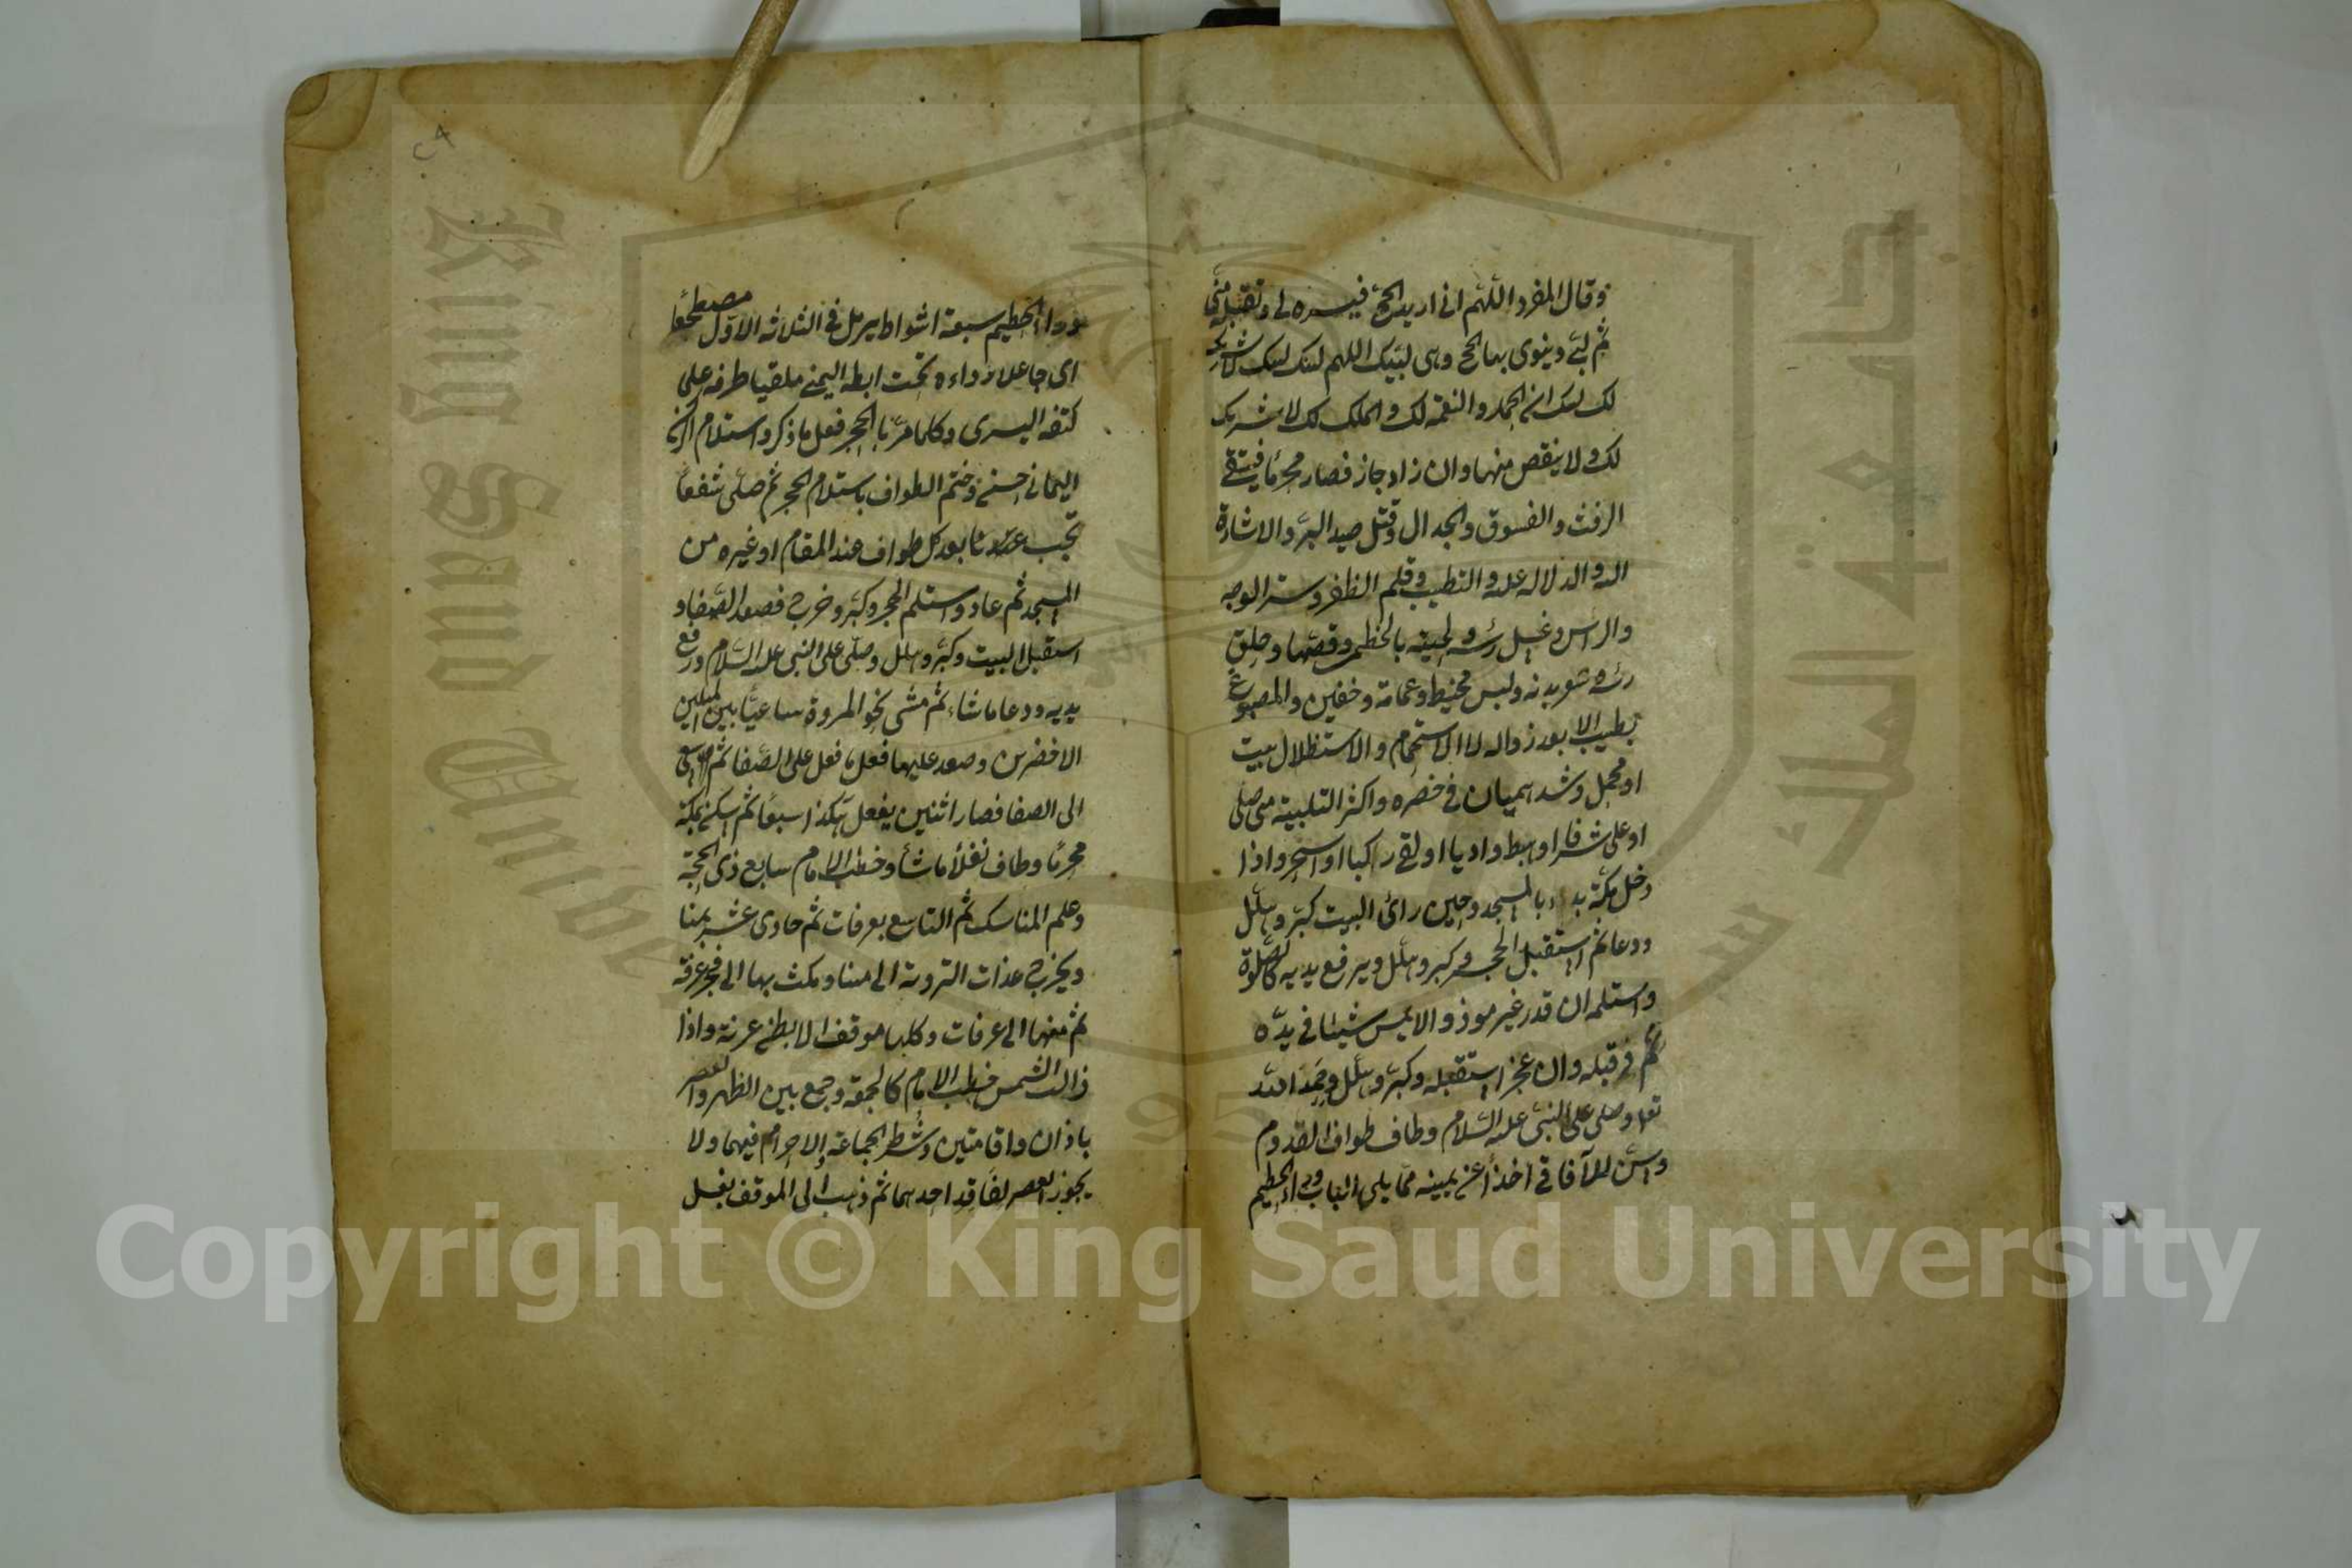 وقال المفرد اللهم انى اريد الحج فيسره لى وتقبله منى
ثم لبى وينوى بها الحج وهى لبيك اللهم لبيك لبيك لا شريك
لك لبيك ان الحمد والنعمة لك والملك لك لا شريك
لك ولا ينقص منها وان زاد جاز فصار محرما فيتقى
الرفث والفسوق والجدال وقتل صيد البر والاشارة
اليه والدلالة عليه والتطيب وقلم الظفر وستر الوجه
والرأس وغسل رأسه ولحيته بالخطمى وقصها وحلق
رأسه وشعر بدنه ولبس مخيط وعمامة وخفين والمصبوغ
بطيب الا بعد زواله لا الاستحمام والاستظلال ببيت
او محمل وشد هميان فى خصره واكثر التلبية متى صلى
او على شرفا او هبط واديا او لقى راكبا او اسحر واذا
دخل مكة بدء بالمسجد وحين رأى البيت كبر وهلل
ودعا ثم استقبل الحجر وكبر وهلل ويرفع يديه كالصلوة
واستلمه ان قدر غير موذ والا يمس شيئا فى يده
ثم قبله وان عجز استقبله وكبر وهلل وحمد الله
تعالى وصلى على النبى عليه السلام وطاف طواف القدوم
وسن للآفاقى اخذا عن يمينه مما يلى الباب وراء الحطيم
٢٩
وراء الحطيم سبعة اشواط يرمل فى الثلاثة الاول مضطبعا
اى جاعلا رداءه تحت ابطه اليمنى ملقيا طرفه على
كتفه اليسرى وكلما مر بالحجر فعل ما ذكر واستلام الركن
اليمانى حسن وختم الطواف باستلام الحجر ثم صلى شفعا
تجب عندنا بعد كل طواف عند المقام او غيره من
المسجد ثم عاد واستلم الحجر وكبر وخرج فصعد الصفا و
استقبل البيت وكبر وهلل وصلى على النبى عليه السلام ورفع
يديه ودعا ما شاء ثم مشى نحو المروة ساعيا بين الميلين
الاخضرين وصعد عليها فعل ما فعل على الصفا ثم سعى
الى الصفا فصار اثنين يفعل هكذا سبعا ثم اسكن بمكة
محرما وطاف نفلا ما شأ وخطب الامام سابع ذى الحجة
وعلم المناسك ثم التاسع بعرفات ثم حادى عشر بمنا
ويخرج غداة التروية الى منا ومكث بها الى فجر عرفة
ثم منها الى عرفات وكلها موقف الا بطن عرنة واذا
زالت الشمس خطب الامام كالجمعة وجمع بين الظهر والعصر
باذان واقامتين وشرط الجماعة والاحرام فيهما ولا
يجوز العصر لفاقد احدهما ثم ذهب الى الموقف بغسل
King Saud Unive
Copyright © King Saud University